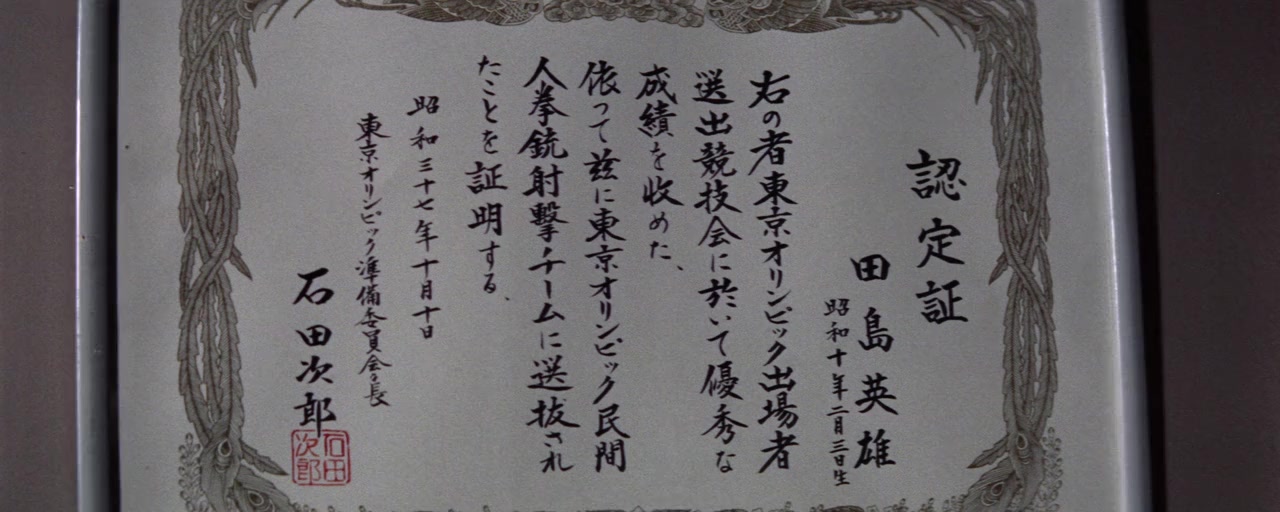 認定証
田島英雄
昭和十年二月三日生
右の者東京オリンピック出場者
選出競技会に於いて優秀な
成績を収めた、
依って茲に東京オリンピック民間
人拳銃射撃チームに選抜され
たことを証明する、
昭和三十七年十月十日
東京オリンピック準備委員会々長
石田次郎
石田次郎